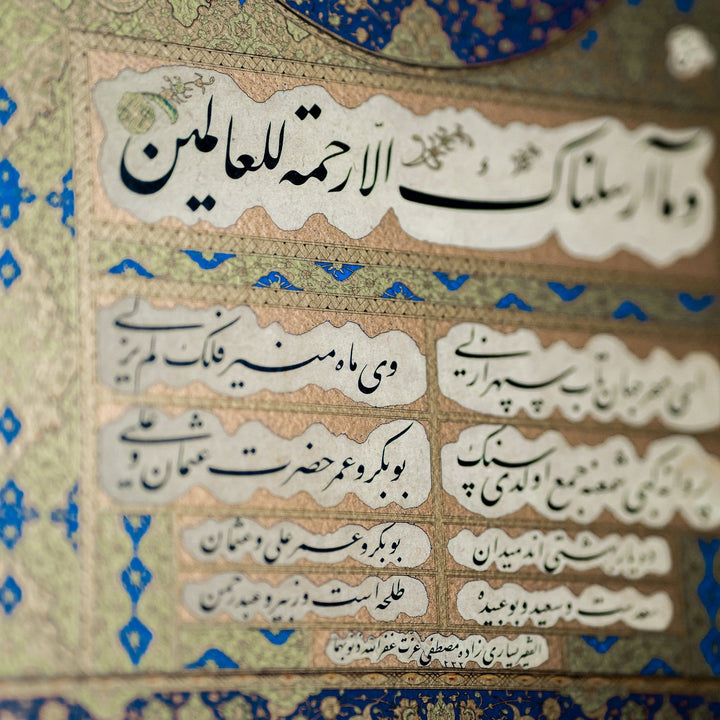 وما آرسلناك الّا رحمة للعالمين
ای مهر جهان تاب سپهر ازلی وی ماه منیر فلك لم یزلی
پروانه کبی شمعنه جمع اولدی سنك بوبکر و عمر حضرت عثمان و علی
ده یار بهشتی اند میدان بوبکر و عمر علی و عثمان
سعدست و سعید و بوعبیده طلحه است و زبیر و عبدرحمن
الفقیر یساری زاده مصطفی عزت غفرالله ذنوبهما